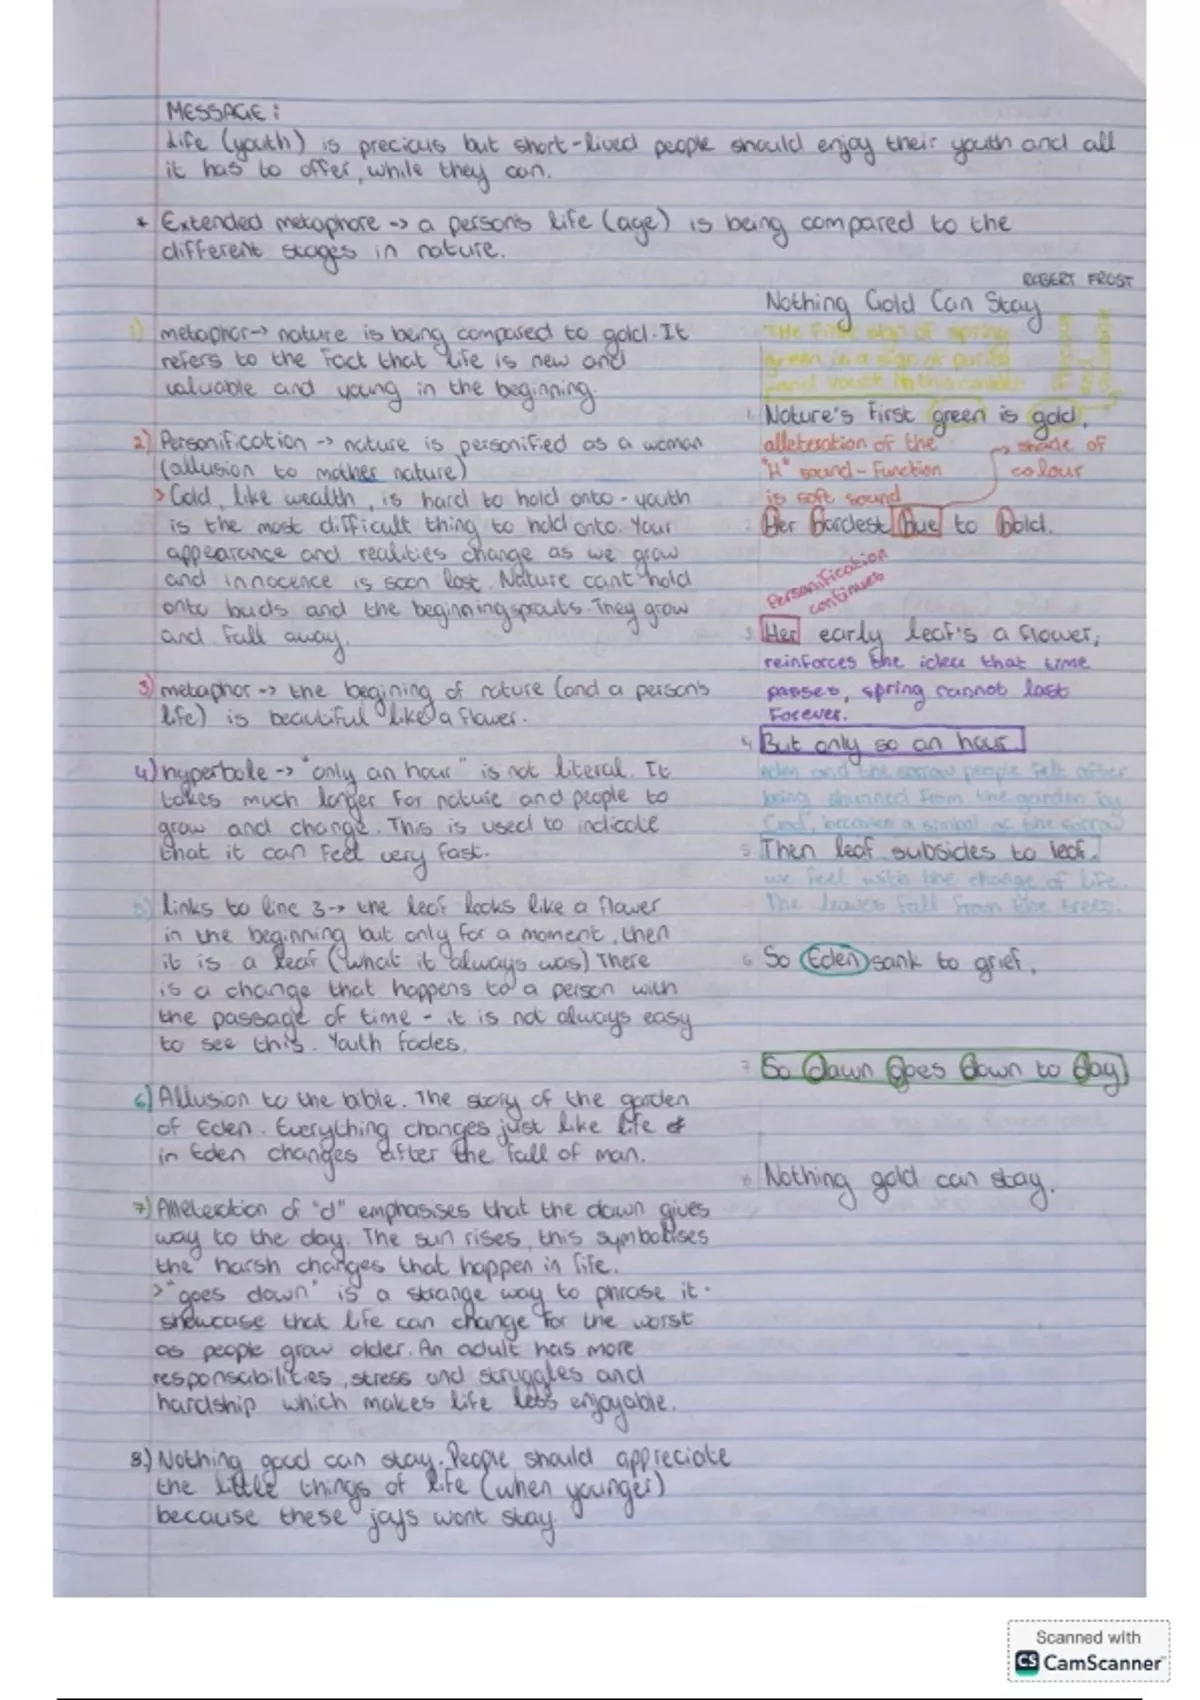 MESSAGE:
Life (youth) is precious but short-lived people should enjoy their youth and all
it has to offer, while they can.
* Extended metaphore -> a person's life (age) is being compared to the
different stages in nature.
1) metaphor-> nature is being compared to gold. It
refers to the fact that life is new and
valuable and young in the beginning.
2) Personification -> nature is personified as a woman
(allusion to mother nature)
> Gold, like wealth, is hard to hold onto - youth
is the most difficult thing to hold onto. Your
appearance and realities change as we grow
and innocence is soon lost. Nature cant hold
onto buds and the beginning sprouts. They grow
and fall away.
3) metaphor -> the begining of nature (and a person's
life) is beautiful like a flower.
4) hyperbole -> "only an hour" is not literal. It
takes much longer for nature and people to
grow and change. This is used to indicate
that it can feel very fast.
5) links to line 3-> the leaf looks like a flower
in the beginning but only for a moment, then
it is a leaf (what it always was) There
is a change that happens to a person with
the passage of time - it is not always easy
to see this. Youth fades.
6) Allusion to the bible. The story of the garden
of Eden. Everything changes just like life
in Eden changes after the fall of man.
7) Alleteration of "d" emphasises that the dawn gives
way to the day. The sun rises, this symbolises
the harsh changes that happen in life.
> "goes down" is a strange way to phrase it.
showcase that life can change for the worst
as people grow older. An adult has more
responsabilities, stress and struggles and
hardship which makes life less enjoyable.
8.) Nothing good can stay. People should appreciate
the little things of life (when younger)
because these joys wont stay.
ROBERT FROST
Nothing Gold Can Stay
The first sign of spring
green is a sign of
and youth in
and
1. Nature's first green is gold,
alleteration of the
"H" sound - Function
is soft sound
-> shade of
colour
2. Her hardest hue to hold.
Personification
continues
3 Her early leaf's a flower,
reinforces the idea that time
passes, spring cannot last
forever.
4 But only so an hour.
eden and the sorrow people felt after
being shunned from the garden by
God, becomes a symbol of the sorrow
5 Then leaf subsides to leaf.
we feel with the change of life.
The leaves fall from the trees.
6 So Eden sank to grief,
7 So dawn goes down to day
8 Nothing gold can stay.
Scanned with
CS CamScanner